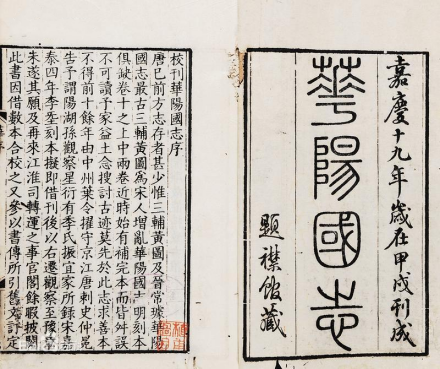 嘉慶十九年歲在甲戌刊成
華陽國志
題襟館藏
校刊華陽國志序
唐已前方志存者甚少惟三輔黃圖及晉常璩華陽
國志最古三輔黃圖為宋人增亂華陽國志明刻本
俱缺卷十之上中兩卷近時始有補完本而皆舛誤
不可讀予家益土念搜討古迹莫先於此志求善本
不得前十餘年由中州葉令擢守京江唐刺史仲冕
告予謂陽湖孫觀察星衍有李氏振宜家所錄宋嘉
泰四年李𡎺刻本擬即借刊後以右遷觀察至豫章
未遂其願及再來江淮司轉運之事官閣餘暇披閱
此書因借數本合校之又參以書傳所引舊文訂定